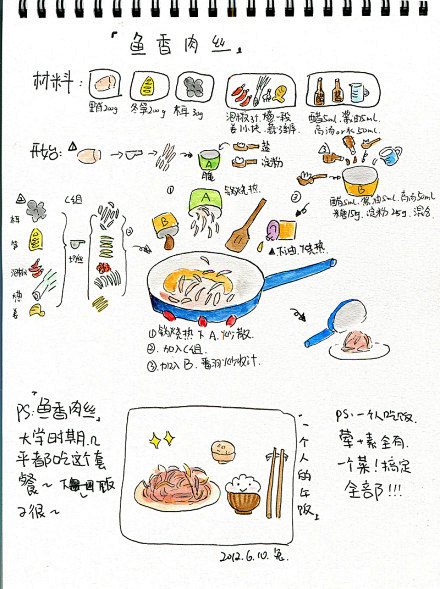 「鱼香肉丝」
材料:
里脊200g
冬笋200g
木耳30g
醋5ml.酱油5ml.
高汤or水50ml.
开始:
A
腌
盐
淀粉
①
锅烧热
A
B
②
醋5ml.酱油5ml.高汤50ml
糖15g.淀粉25g.混合
C组
木耳
笋
泡椒
姜
切丝
下油.烧热
①锅烧热下A.炒散
②.加入C组.
③加入B.翻炒收汁
PS:「鱼香肉丝」
大学时期.几
平都吃这个套
餐~
饭
2很~
「一个人的午饭」
PS:一人吃饭.
荤+素全有.
一个菜!搞定
全部!!!
2012.6.10.兔.